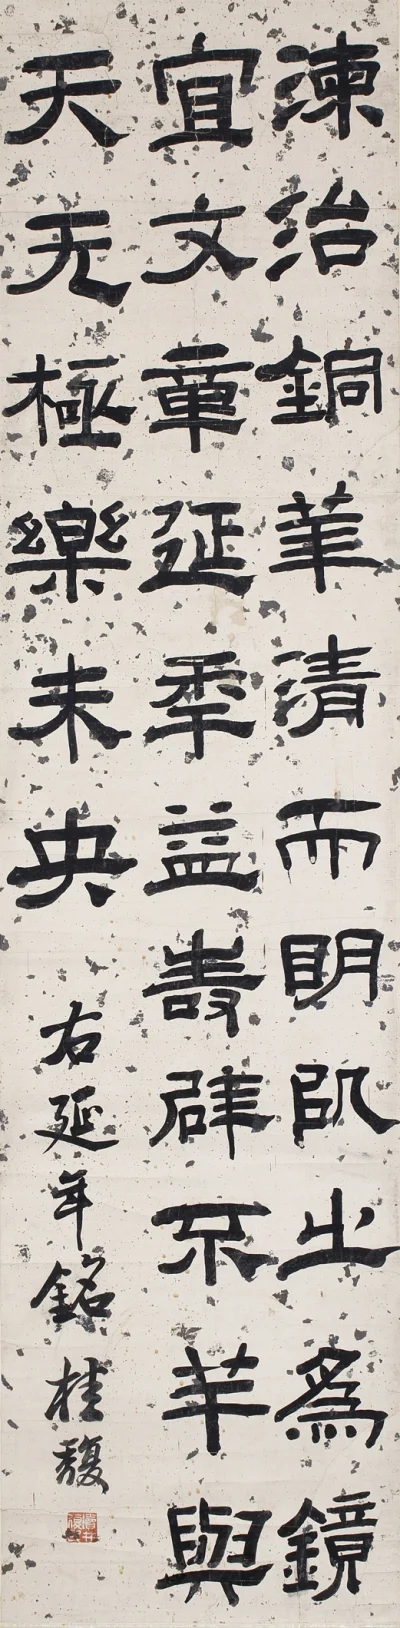 湅治銅華清而明㠯之爲鏡
宜文章延秊益壽辟不羊與
天无極樂未央
右延年銘桂馥